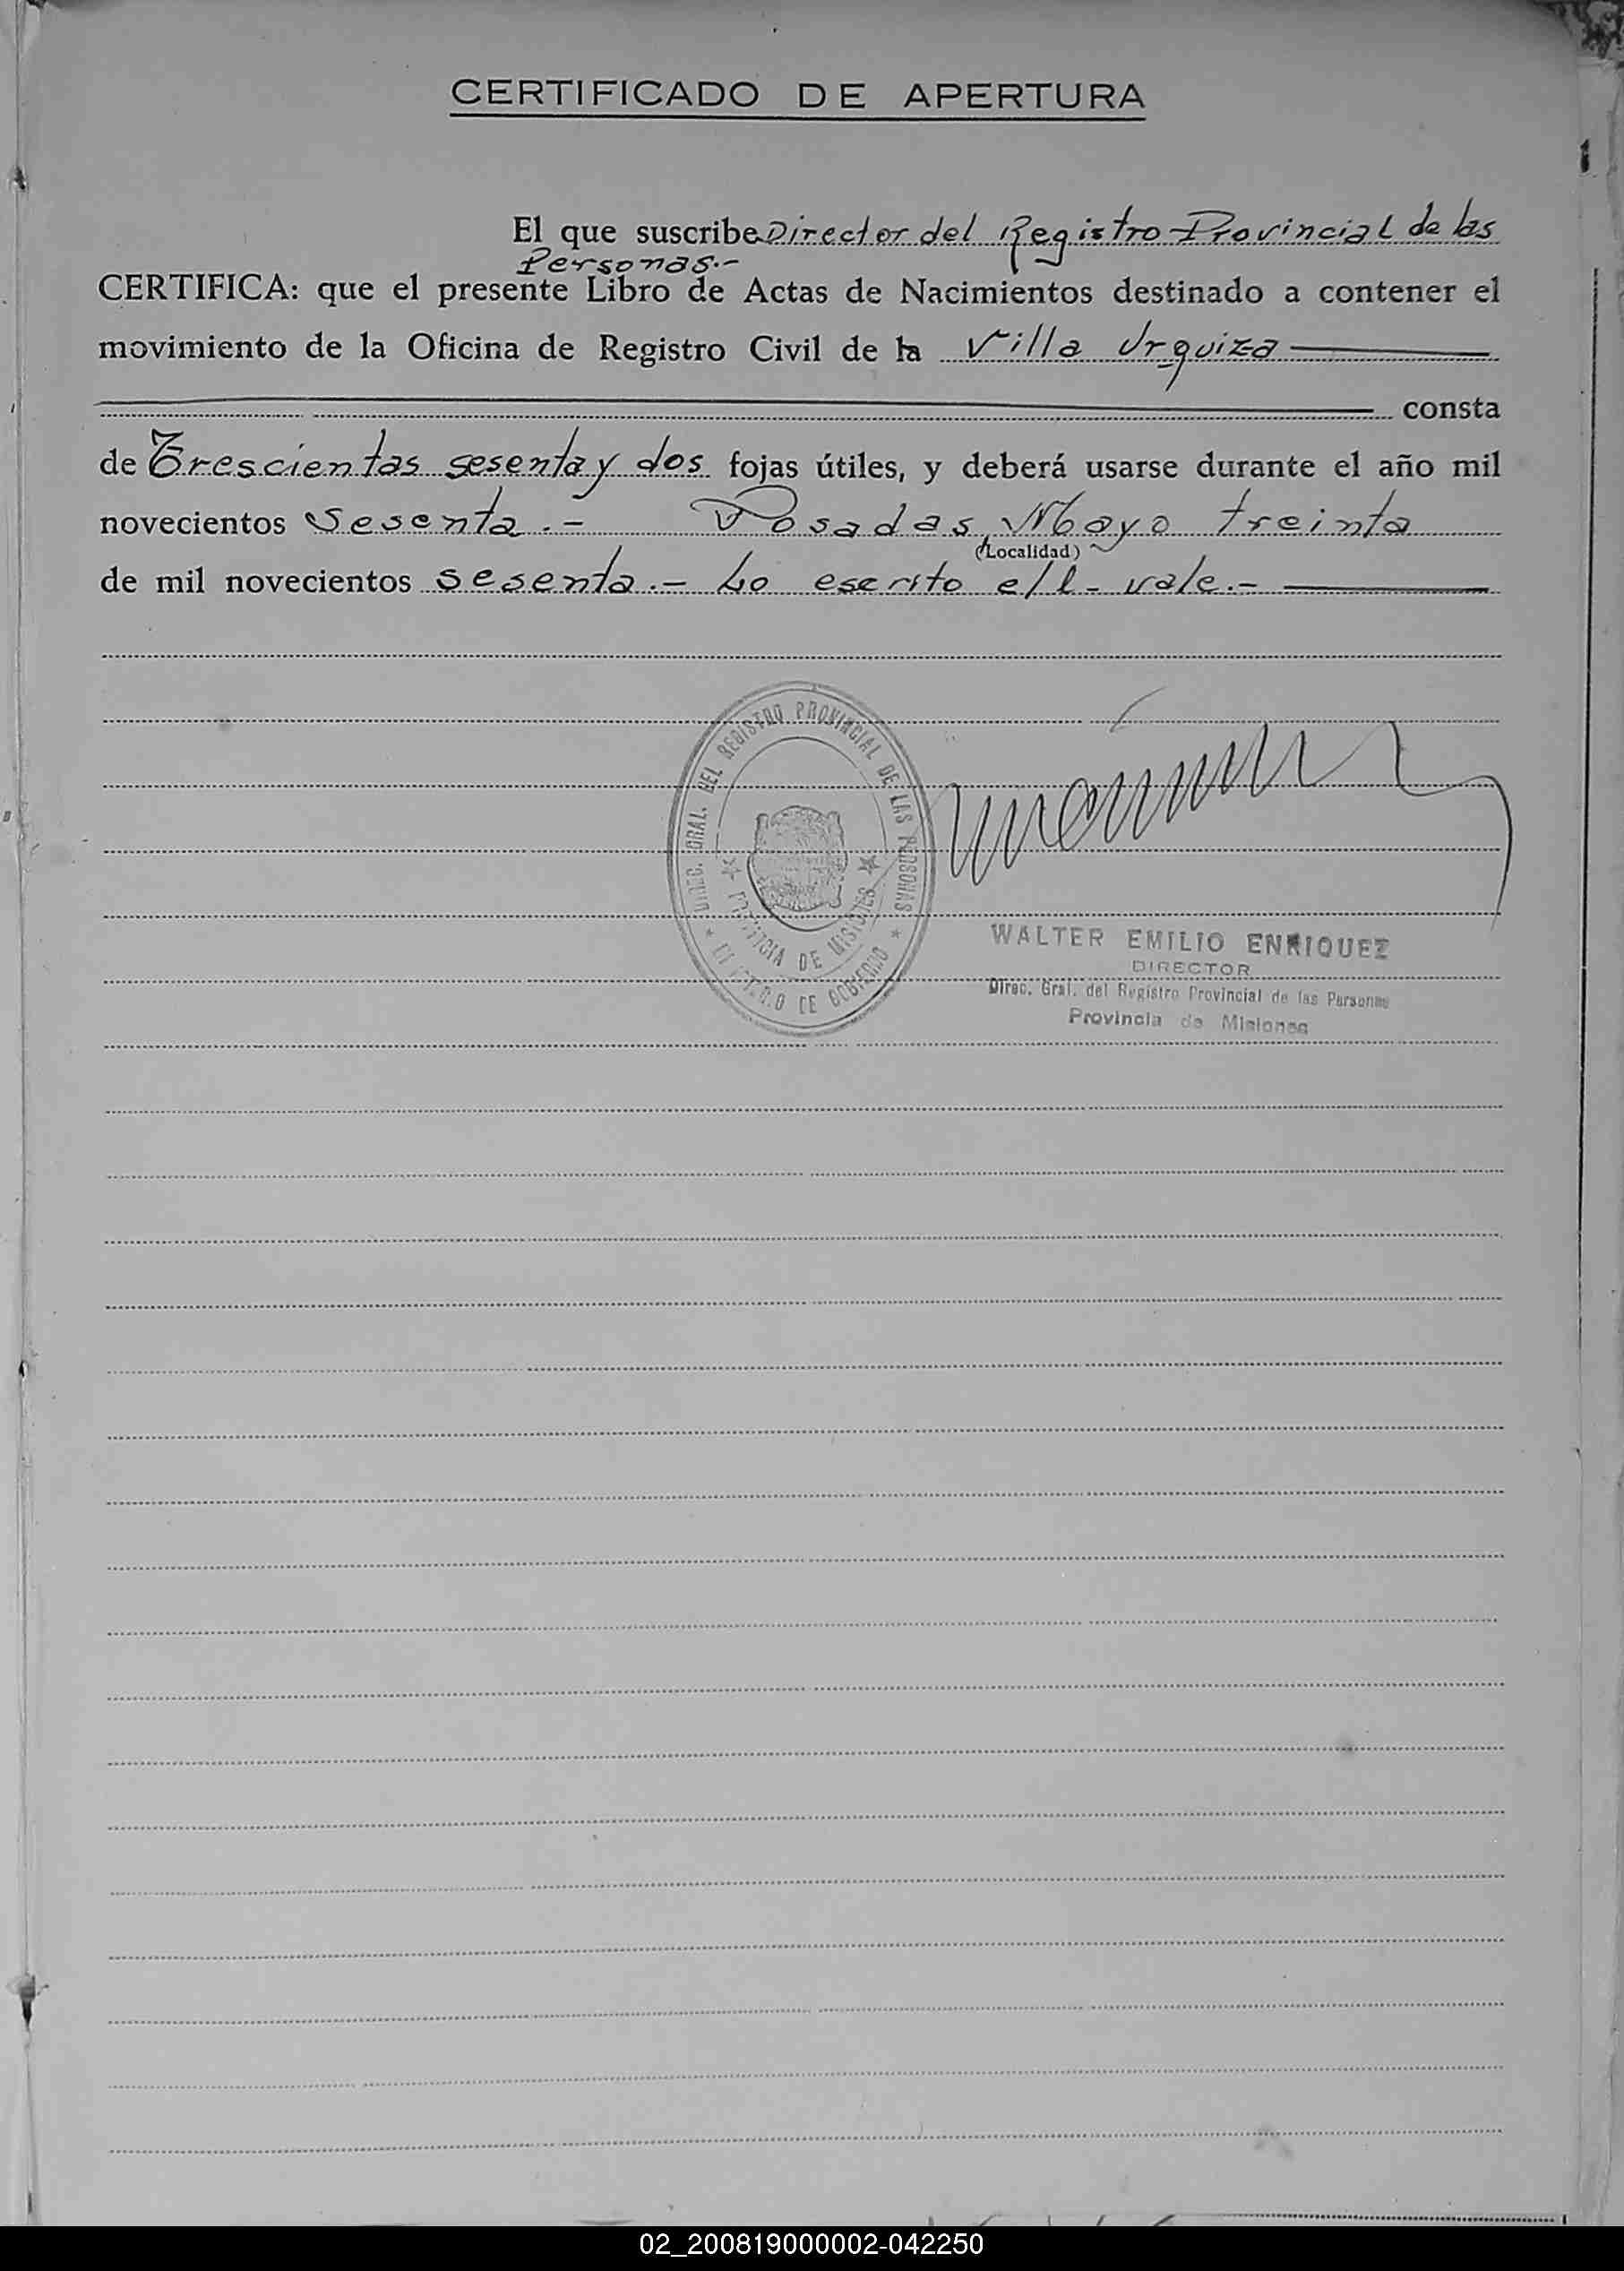 CERTIFICADO DE APERTURA
El que suscribe Director del Registro Provincial de las
Personas.-
CERTIFICA: que el presente Libro de Actas de Nacimientos destinado a contener el
movimiento de la Oficina de Registro Civil de la Villa Urquiza
consta
de Trescientas sesenta y dos fojas útiles, y deberá usarse durante el año mil
novecientos sesenta.- Posadas, Mayo treinta
(Localidad)
de mil novecientos sesenta.- Lo escrito e/l- vale.-
DIREC. GRAL. DEL REGISTRO PROVINCIAL DE LAS PERSONAS
PROVINCIA DE MISIONES
MINISTERIO DE GOBIERNO
WALTER EMILIO ENRIQUEZ
DIRECTOR
Direc. Gral. del Registro Provincial de las Personas
Provincia de Misiones
02_200819000002-042250